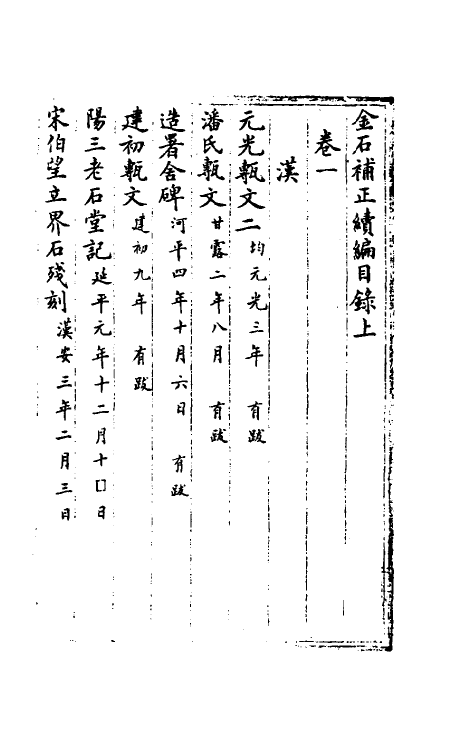 金石補正續編目錄上
卷一
漢
元光甎文二 均元光三年 有跋
潘氏甎文 甘露二年八月 有跋
造署舍碑 河平四年十月六日 有跋
建初甎文 建初九年 有跋
陽三老石堂記 延平元年十二月十□日
宋伯望立界石殘刻 漢安三年二月三日